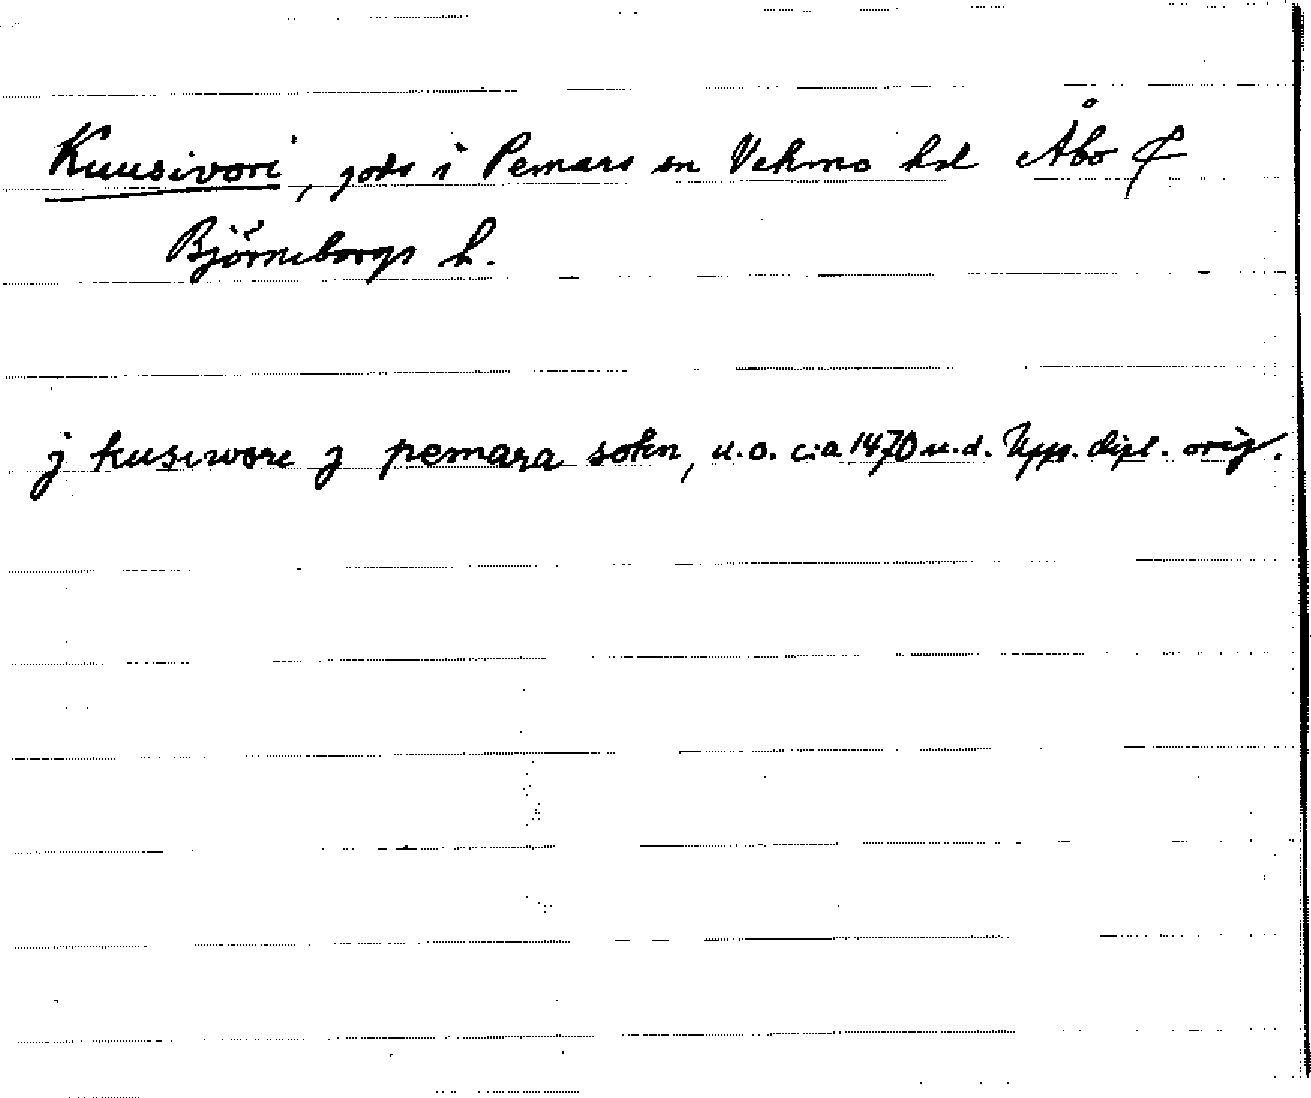 Kuusivori, gods i Pemars sn Vehmo hd Åbo &
Björneborgs l.
j kusiwore j pemara sokn, u.o. c:a 1470 u.d. Upps. dipl. orig.